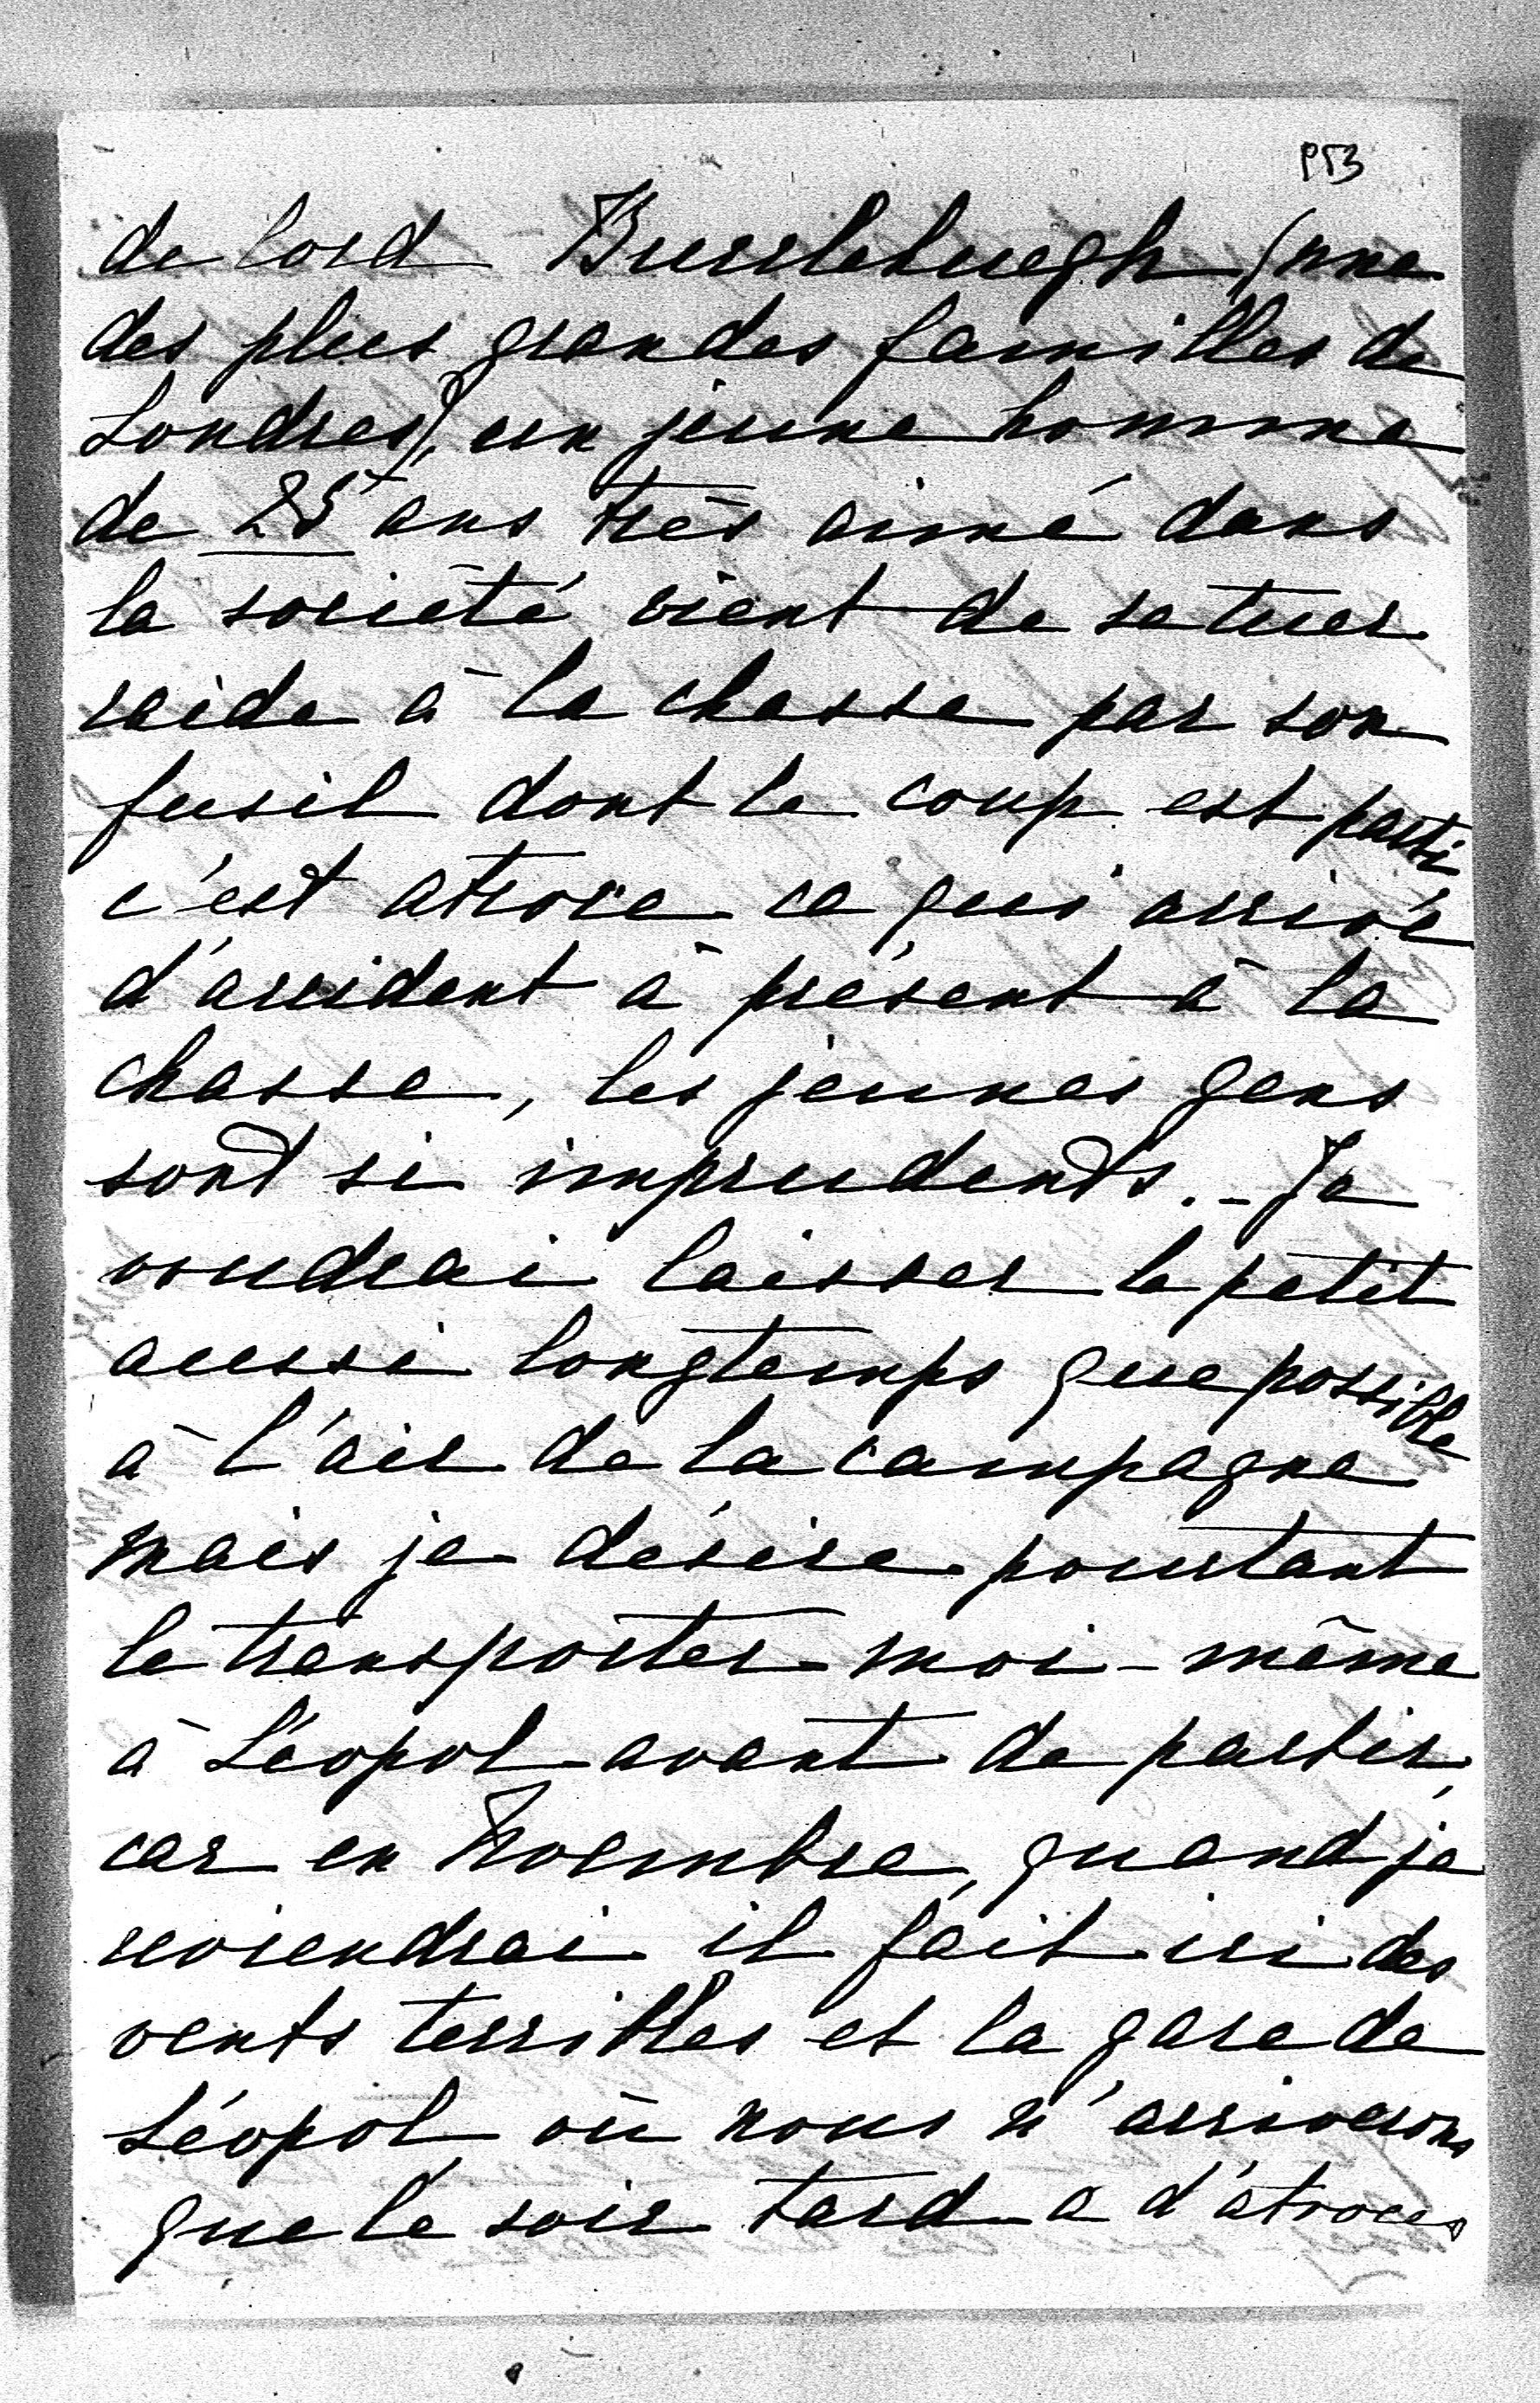 P53
de lord Burrlebuegh (une
des plus grandes familles de
Londres), un jeune homme
de 25 ans très aimé dans
la société vient de se tuer
raide à la chasse par son
fusil dont le coup est parti
c'est atroce ce qui arrive
d'accident à présent à la
chasse, les jeunes gens
sont si imprudents. - Je
voudrai laisser le petit
aussi longtemps que possible
à l'air de la campagne
mais je désire pourtant
le transporter moi-même
à Léopol avant de partir,
car en Novembre, quand je
reviendrai il fait ici des
vents terribles et la gare de
Léopol où nous n'arriverons
que le soir tard a d'atroces